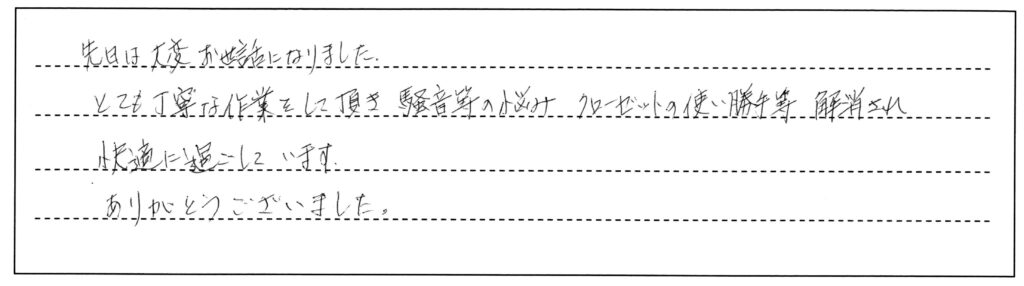 先日は大変お世話になりました.
とても丁寧な作業をして頂き 騒音等の悩み クローゼットの使い勝手等 解消され
快適に過ごしています.
ありがとうございました。